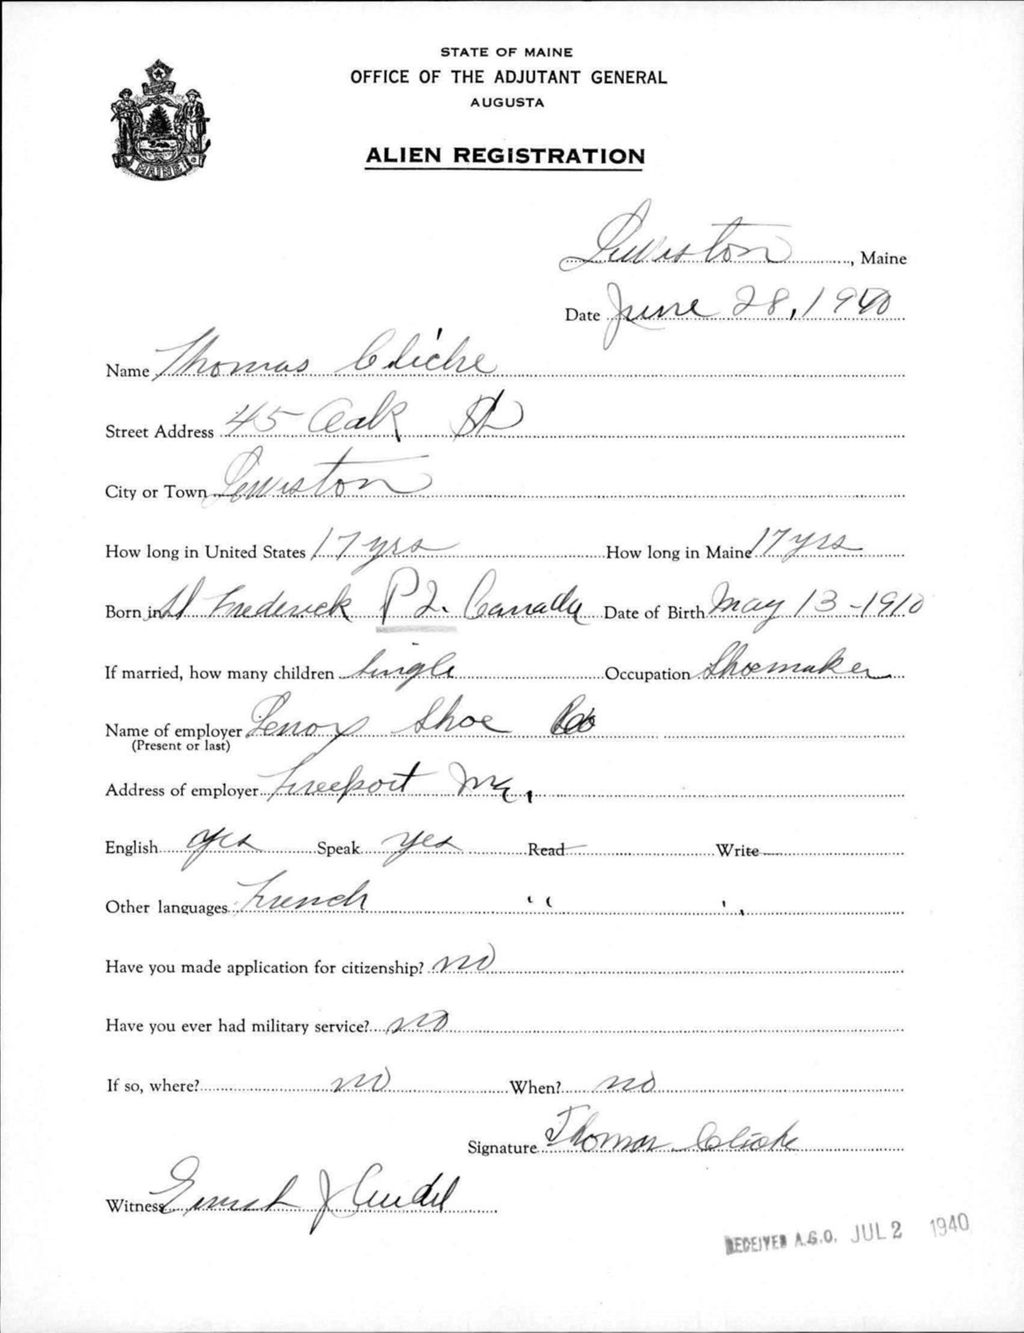 STATE OF MAINE
OFFICE OF THE ADJUTANT GENERAL
AUGUSTA
MAINE
ALIEN REGISTRATION
Lewiston, Maine
Date June 28, 1940
Name Thomas Cliche
Street Address 45 Oak St
City or Town Lewiston
How long in United States 17 yrs How long in Maine 17 yrs
Born in St Frederick P Q. Canada Date of Birth May 13 - 1910
If married, how many children Single Occupation Shoemaker
Name of employer Lenox Shoe Co
(Present or last)
Address of employer Freeport Me,
English yes Speak yes Read Write
Other languages French " "
Have you made application for citizenship? no
Have you ever had military service? no
If so, where? no When? no
Signature Thomas Cliche
Witness J
RECEIVED A.G.O. JUL 2 1940